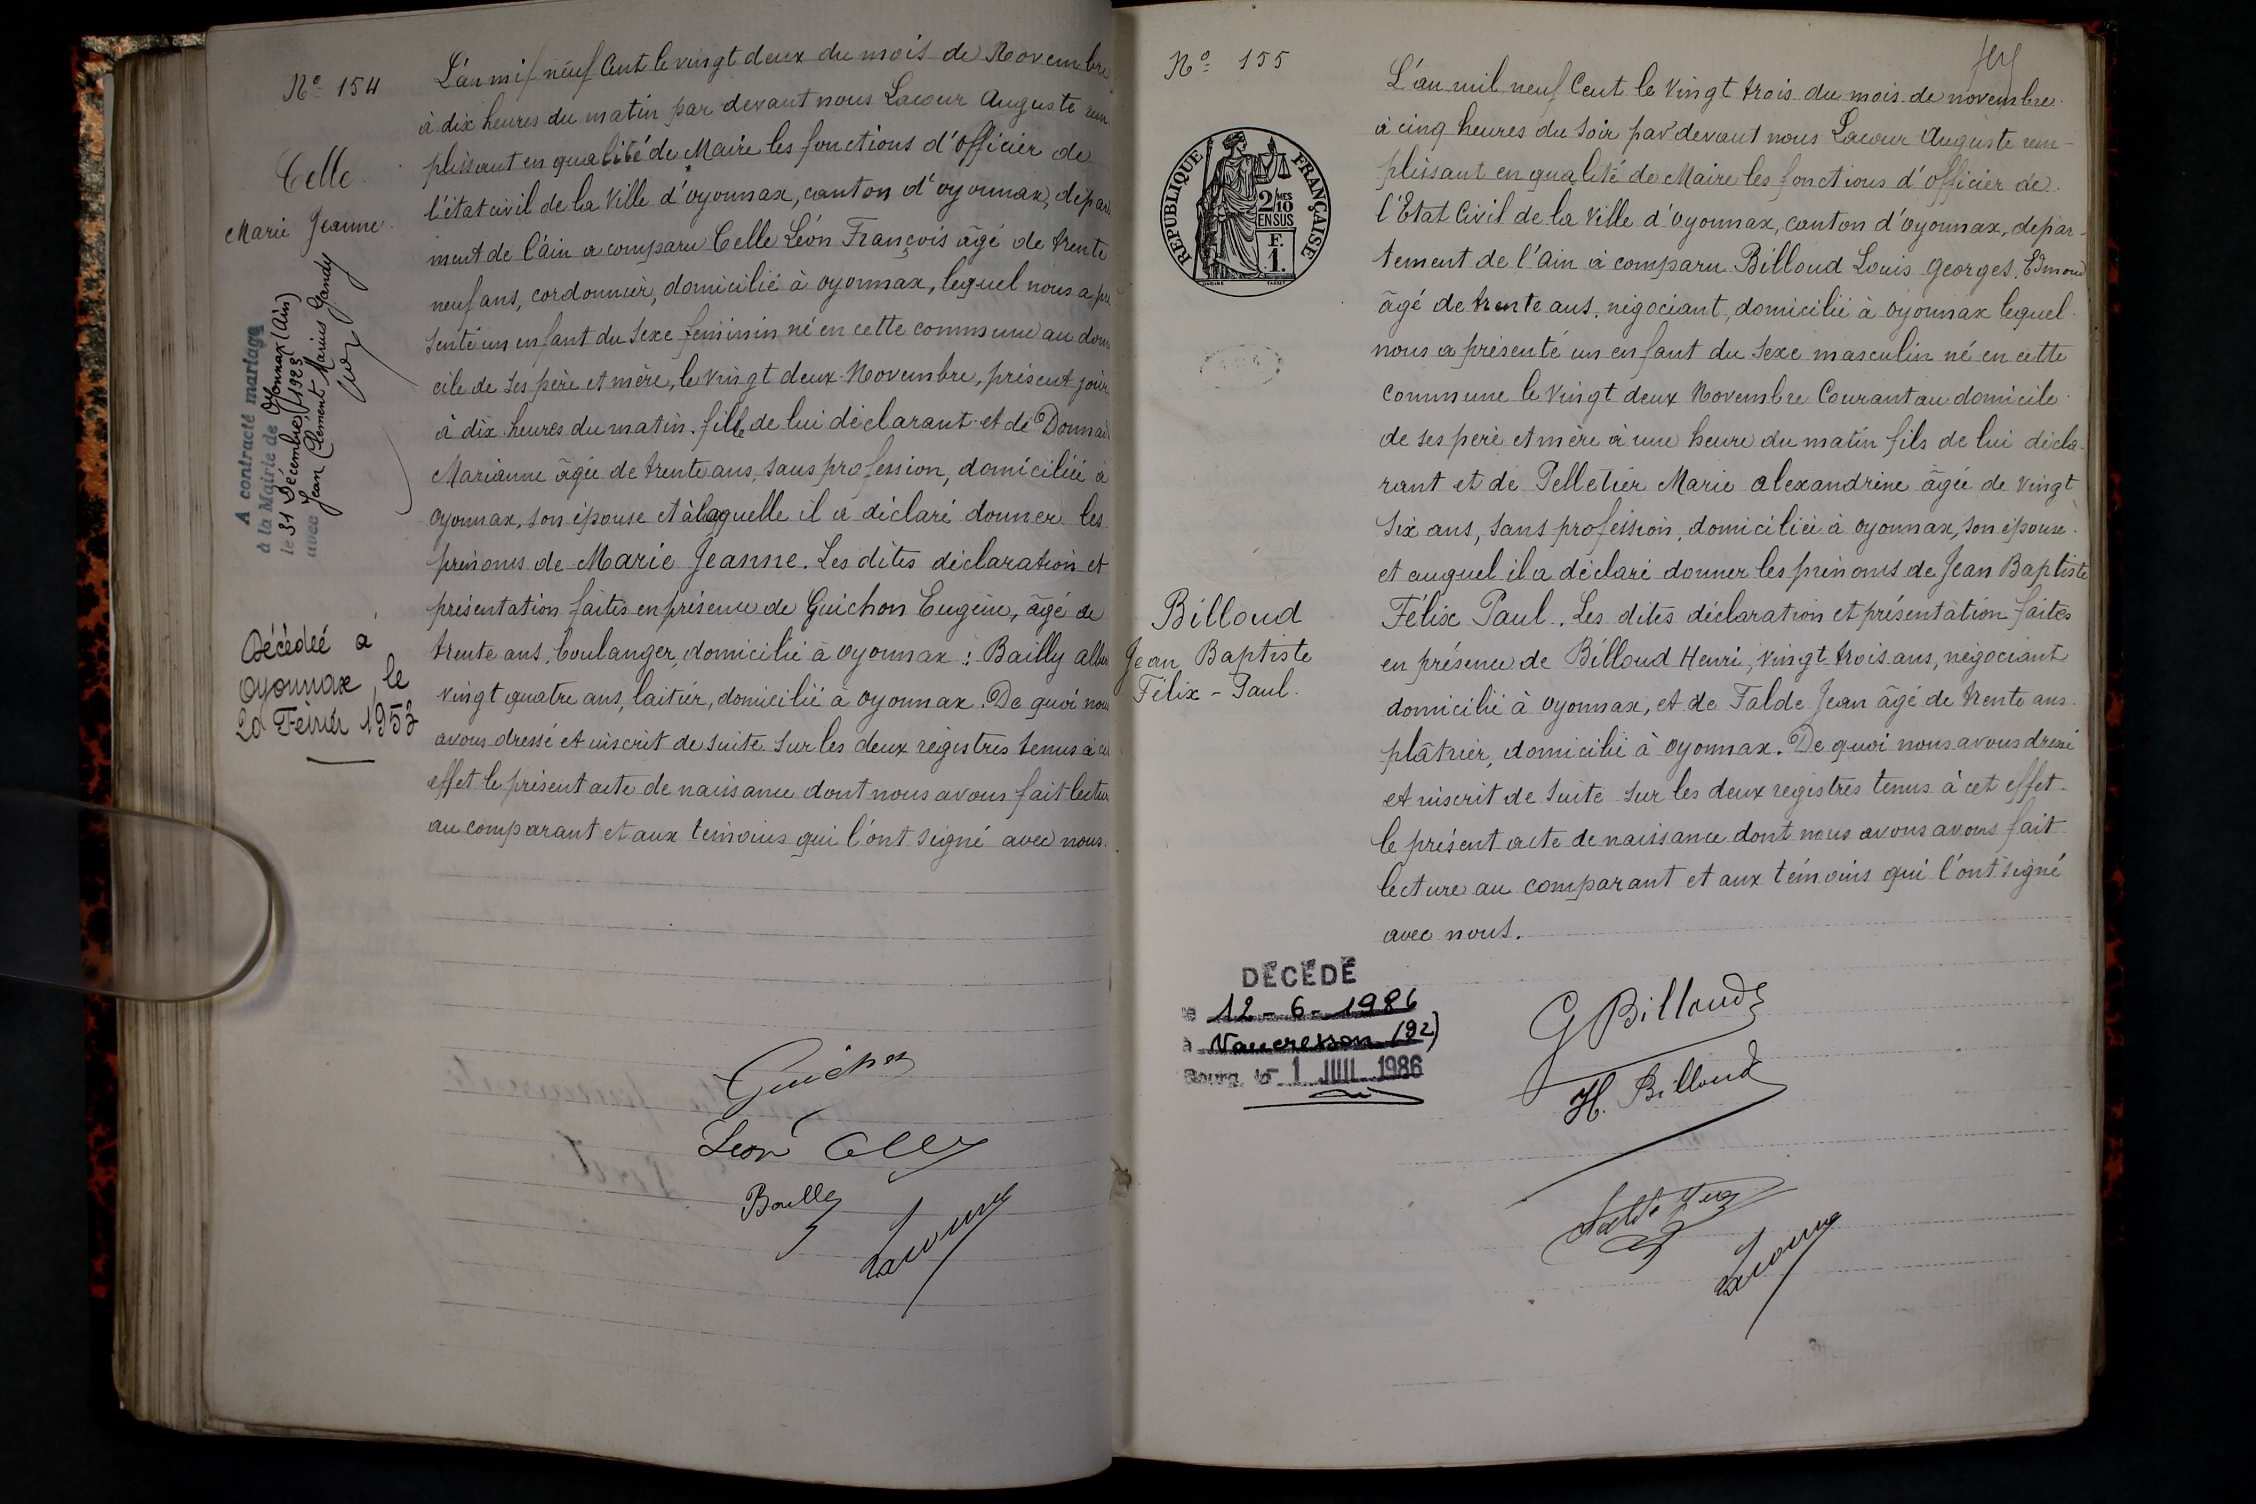 N° 154
Celle
Marie Jeanne
A contracté mariage
à la Mairie de Oyonnax (Ain)
le 31 Décembre 1925
avec Jean Clément Marius Gandy
Décédée à
Oyonnax, le
20 Février 1953
L'an mil neuf Cent le vingt deux du mois de Novembre
à dix heures du matin par devant nous Lacour Auguste rem
plissant en qualité de Maire les fonctions d'officier de
l'état civil de la Ville d'oyonnax, canton d'oyonnax, dépar
ment de l'ain a comparu Celle Léon François âgé de trente
neuf ans, cordonnier, domicilié à oyonnax, lequel nous a pré
senté un enfant du sexe féminin né en cette commune au domi
cile de ses père et mère, le vingt deux Novembre, présent jour
à dix heures du matin. fille de lui déclarant et de
Marianne âgée de trente ans, sans profession, domiciliée à
oyonnax, son épouse et à laquelle il a déclaré donner les
prénoms de Marie Jeanne. Les dites déclaration et
présentation faites en présence de Guichon Eugène, âgé de
trente ans, boulanger, domicilié à oyonnax : Bailly
vingt quatre ans, laitier, domicilié à oyonnax. De quoi nous
avons dressé et inscrit de suite sur les deux registres tenus à cet
effet le présent acte de naissance dont nous avons fait lecture
au comparant et aux témoins qui l'ont signé avec nous.
Guichon
Léon Celle
Bailly
Lacour
N° 155
REPUBLIQUE FRANÇAISE
2/10 MES
EN SUS
F.
1.
Billoud
Jean Baptiste
Félix - Paul.
L'an mil neuf Cent le vingt trois du mois de novembre
à cinq heures du soir par devant nous Lacour Auguste rem-
plissant en qualité de Maire les fonctions d'officier de
l'Etat Civil de la Ville d'oyonnax, canton d'oyonnax, dépar-
tement de l'ain à comparu Billoud Louis Georges, Edmond
âgé de trente ans, négociant, domicilié à oyonnax lequel
nous a présenté un enfant du sexe masculin né en cette
commune le vingt deux Novembre Courant au domicile
de ses père et mère à une heure du matin fils de lui décla-
rant et de Pelletier Marie alexandrine âgée de vingt
six ans, sans profession, domiciliée à oyonnax, son épouse
et auquel il a déclaré donner les prénoms de Jean Baptiste
Félix Paul. Les dites déclaration et présentation faites
en présence de Billoud Henri, vingt trois ans, négociant
domicilié à oyonnax, et de Falde Jean âgé de trente ans
plâtrier, domicilié à oyonnax. De quoi nous avons dressé
et inscrit de suite sur les deux registres tenus à cet effet
le présent acte de naissance dont nous avons avons fait
lecture au comparant et aux témoins qui l'ont signé
avec nous.
DÉCÉDÉ
le 12-6-1986
à Vaucresson (92)
Bourg, le 1 JUIL 1986
G Billoud
H. Billoud
Falde Jean
Lacour